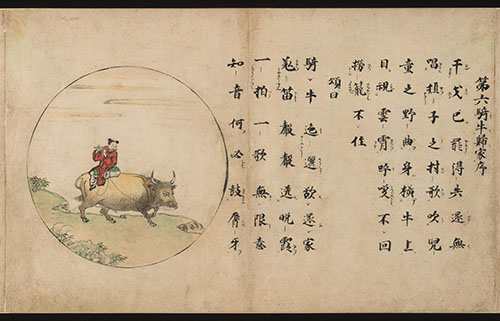 第六騎牛歸家序
干戈已罷得失還無
唱樵子之村歌吹兒
童之野曲身橫牛上
目視雲霄呼喚不回
撈籠不住
頌曰
騎牛迤邐欲還家
羌笛聲聲送晚霞
一拍一歌無限意
知音何必鼓脣牙